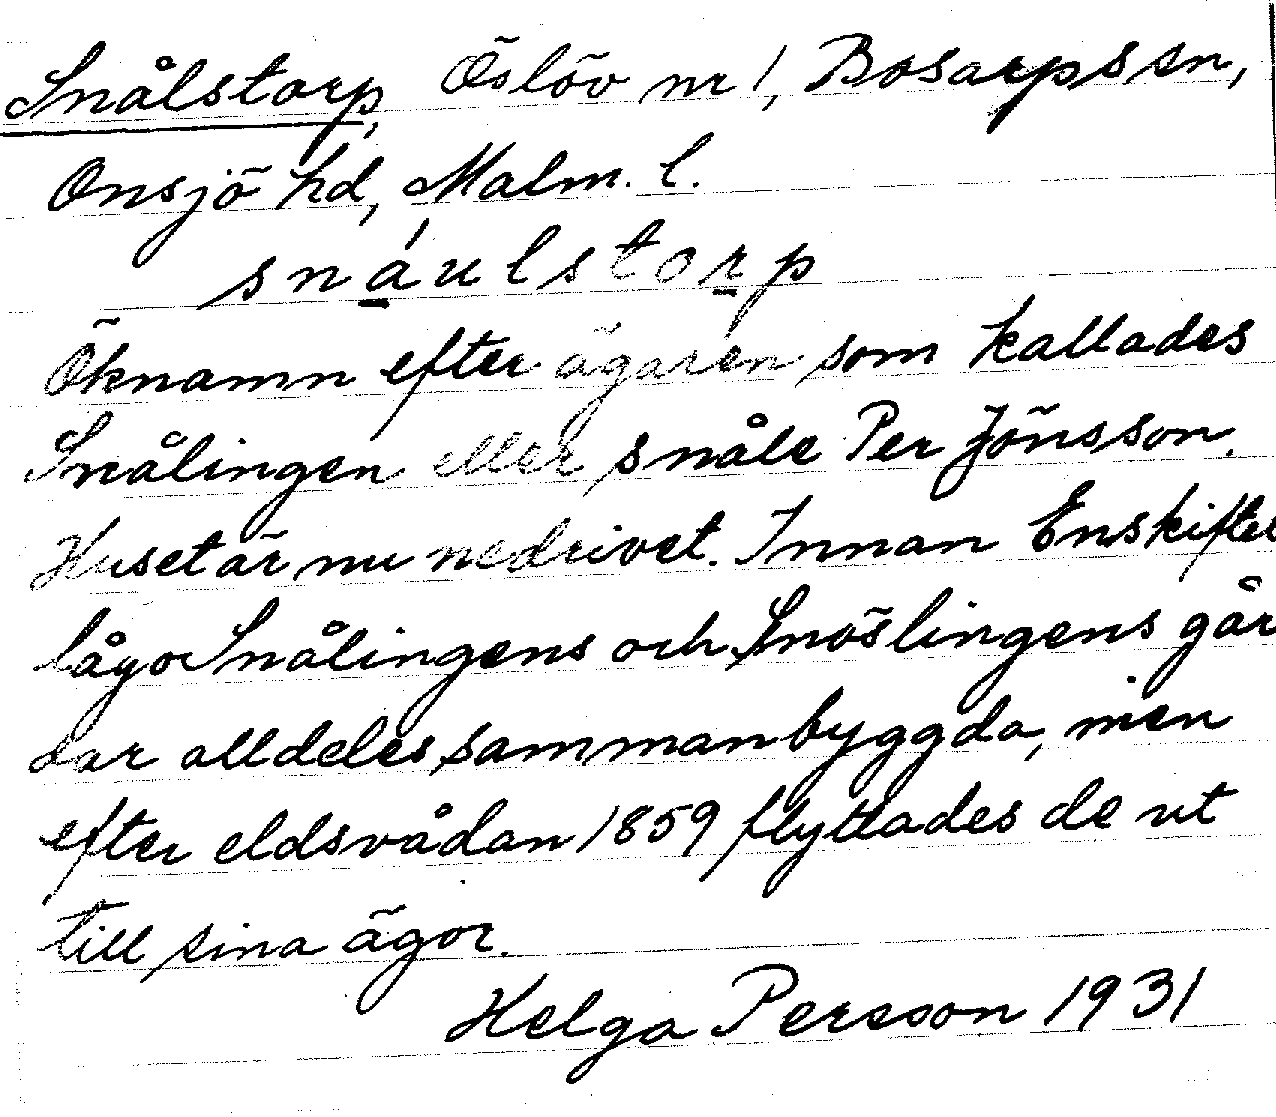 Snålstorp, Öslöv nr 1, Bosarps sn,
Onsjö hd, Malm. l.
snáulstorp
Öknamn efter ägaren som kallades
Snålingen eller snåle Per Jönsson.
Huset är nu nedrivet. Innan Enskiftet
lågo Snålingens och Snöslingens går
dar alldeles sammanbyggda, men
efter eldsvådan 1859 flyttades de ut
till sina ägor.
Helga Persson 1931